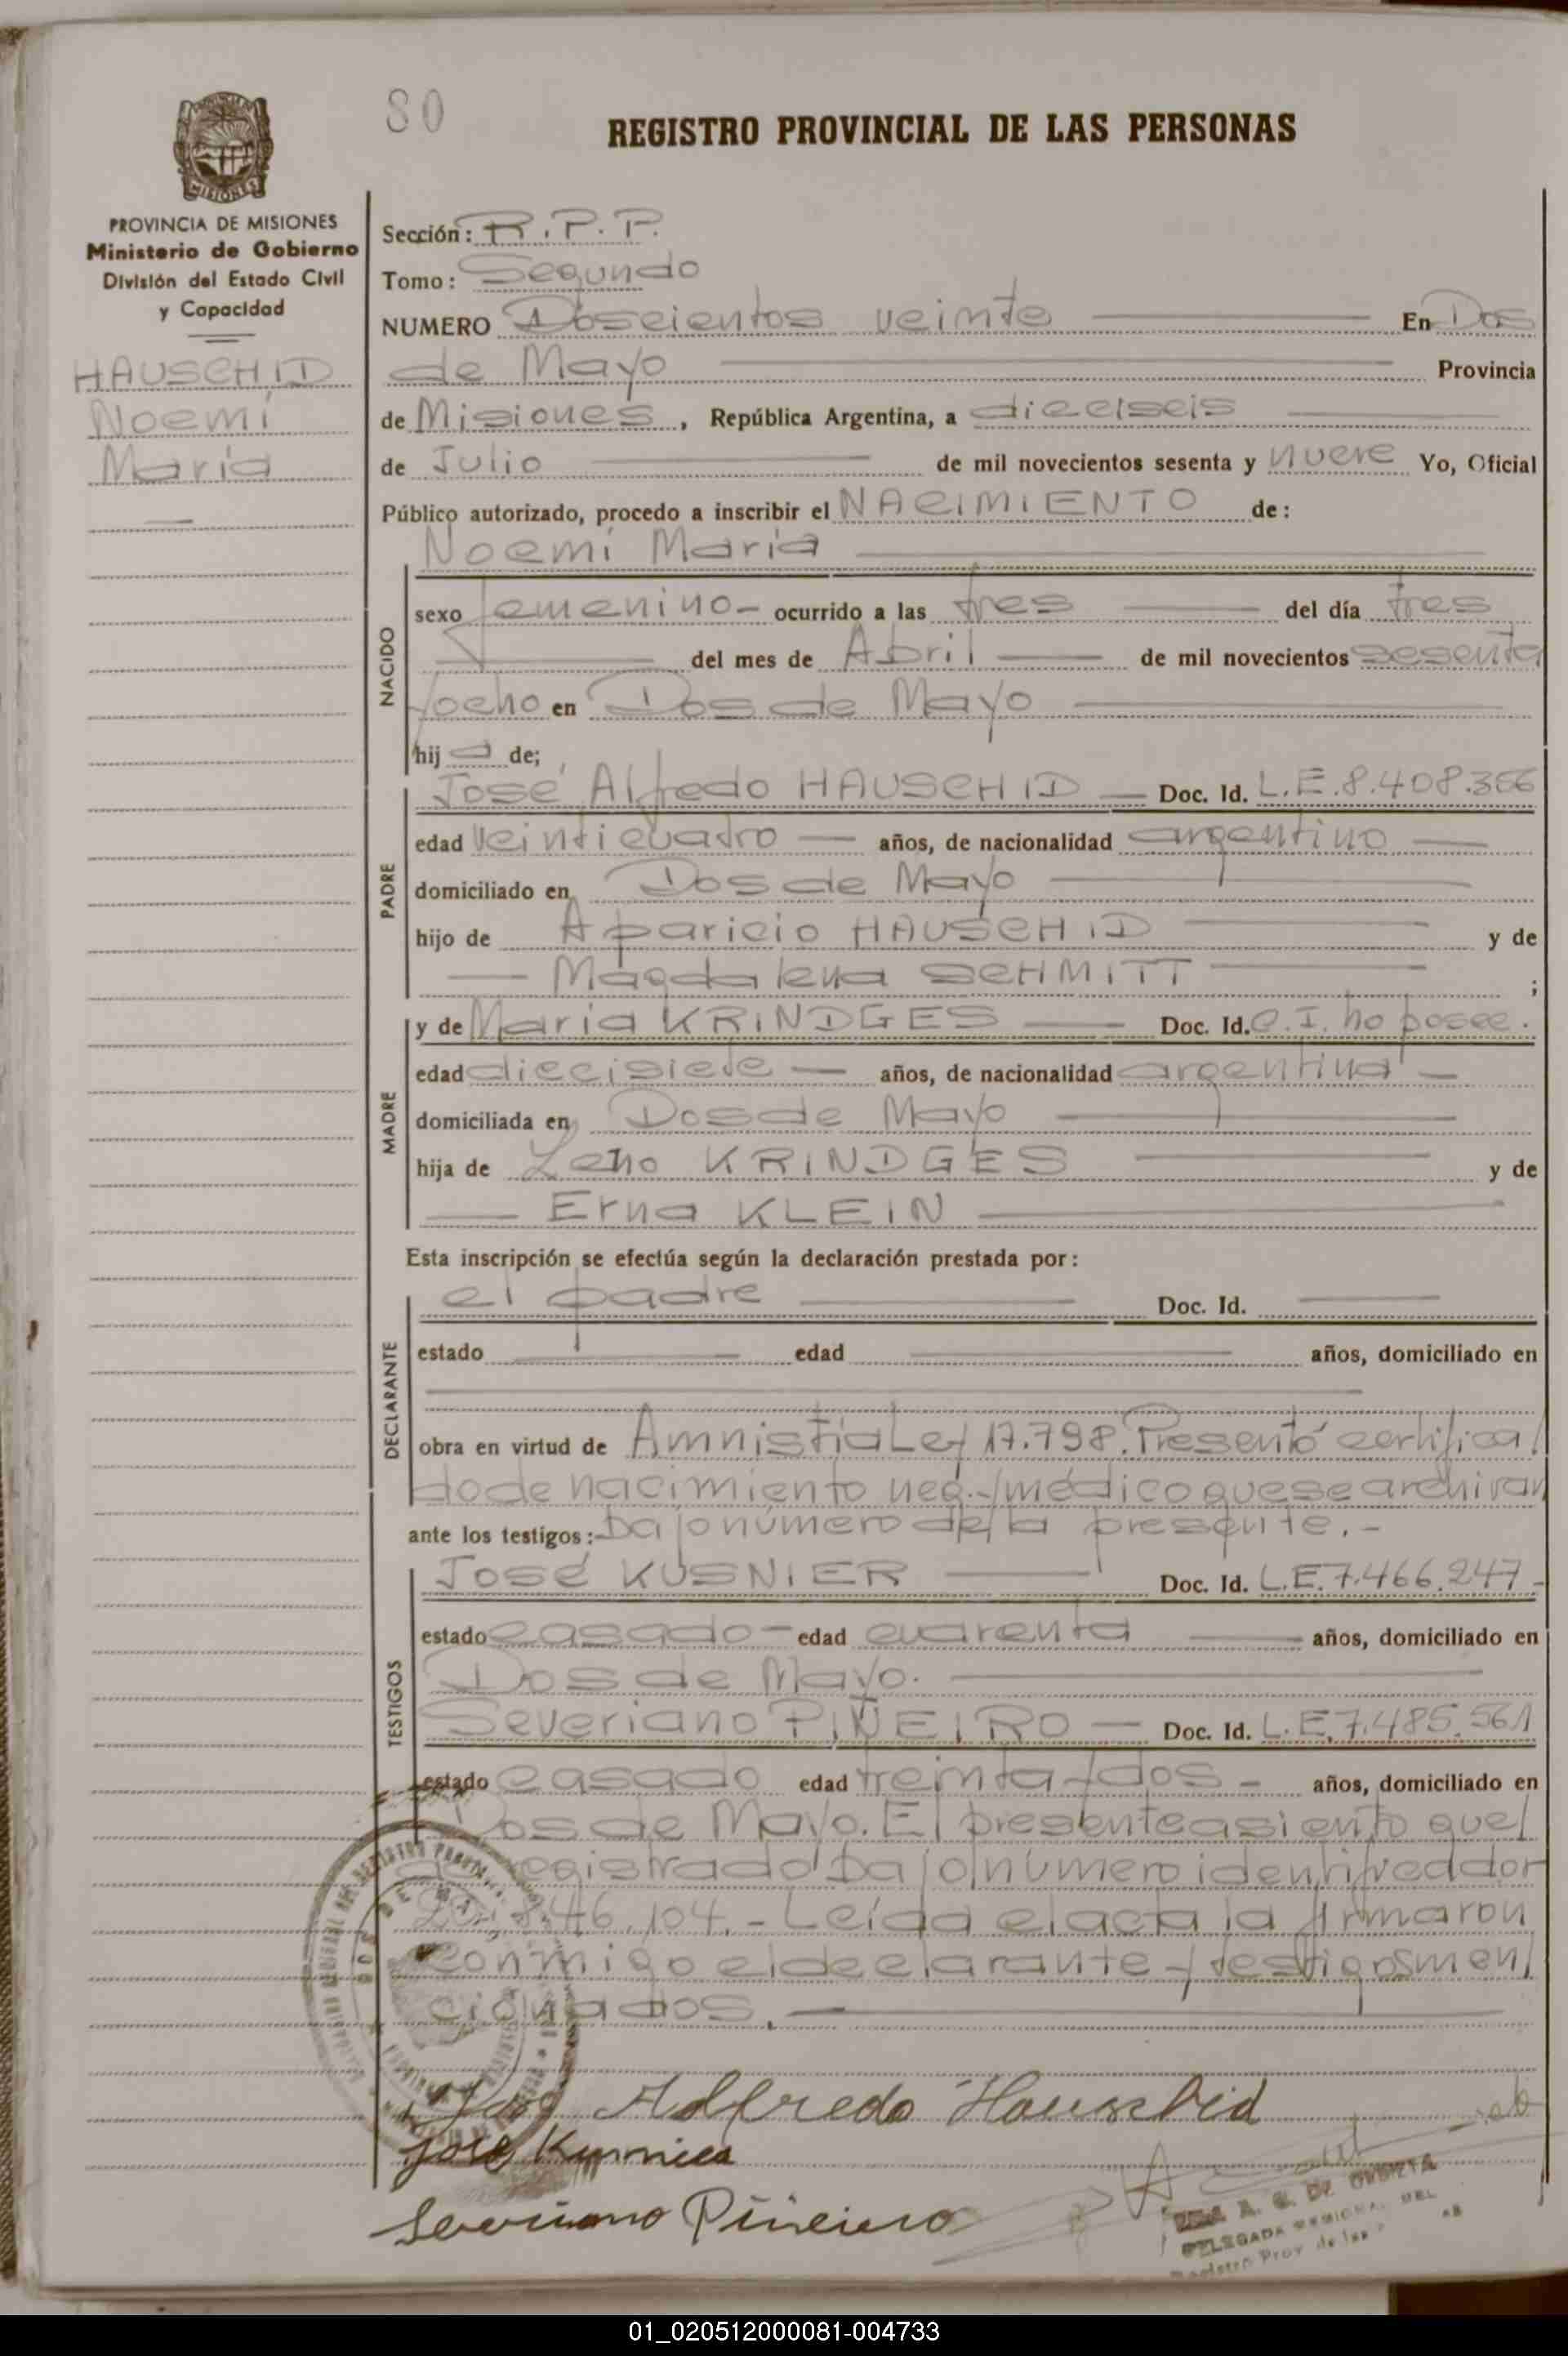 80
REGISTRO PROVINCIAL DE LAS PERSONAS
MISIONES
PROVINCIA DE MISIONES
Ministerio de Gobierno
División del Estado Civil
y Capacidad
HAUSCHID
Noemí
María
Sección: R.P.P.
Tomo: Segundo
NUMERO Doscientos veinte En Dos
de Mayo Provincia
de Misiones, República Argentina, a dieciseis
de Julio de mil novecientos sesenta y nueve Yo, Oficial
Público autorizado, procedo a inscribir el NACIMIENTO de:
Noemí María
NACIDO
sexo femenino- ocurrido a las tres del día tres
del mes de Abril de mil novecientos sesenta
y ocho en Dos de Mayo
hija de;
PADRE
José Alfredo HAUSCHID Doc. Id. L.E.8.408.356
edad veinticuatro años, de nacionalidad argentino
domiciliado en Dos de Mayo
hijo de Aparicio HAUSCHID y de
Magdalena SCHMITT ;
MADRE
y de María KRINDGES Doc. Id. C.I. no posee.
edad diecisiete años, de nacionalidad argentina
domiciliada en Dos de Mayo
hija de Leno KRINDGES y de
Erna KLEIN
Esta inscripción se efectúa según la declaración prestada por:
DECLARANTE
el padre Doc. Id.
estado edad años, domiciliado en
obra en virtud de Amnistia Ley 17.798. Presentó certifica/
do de nacimiento neg. y médico que se archivan
ante los testigos: bajo número de la presente.-
TESTIGOS
José KUSNIER Doc. Id. L.E.7.466.247-
estado casado- edad cuarenta años, domiciliado en
Dos de Mayo.
Severiano PIÑEIRO Doc. Id. L.E.7.485.561
estado casado edad treinta y dos - años, domiciliado en
Dos de Mayo. El presente asiento que/
da registrado bajo número identificador
46.104.- Leída el acta la firmaron
conmigo el declarante y testigos men/
cionados.
José Alfredo Hauschid
José Kusnier
Severiano Piñeiro
A. G. DE
DELEGADA REGIONAL DEL
Registro Prov. de las
01_020512000081-004733